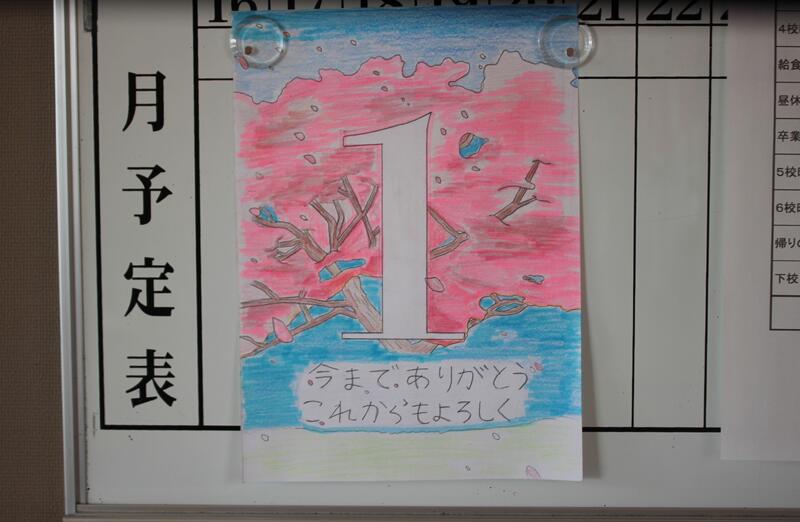 月予定表
16 17 18 19 20 21 22
1
今まで ありがとう
これからもよろしく
4校
給食
昼休
卒業
5校時
6校時
帰りの
下校